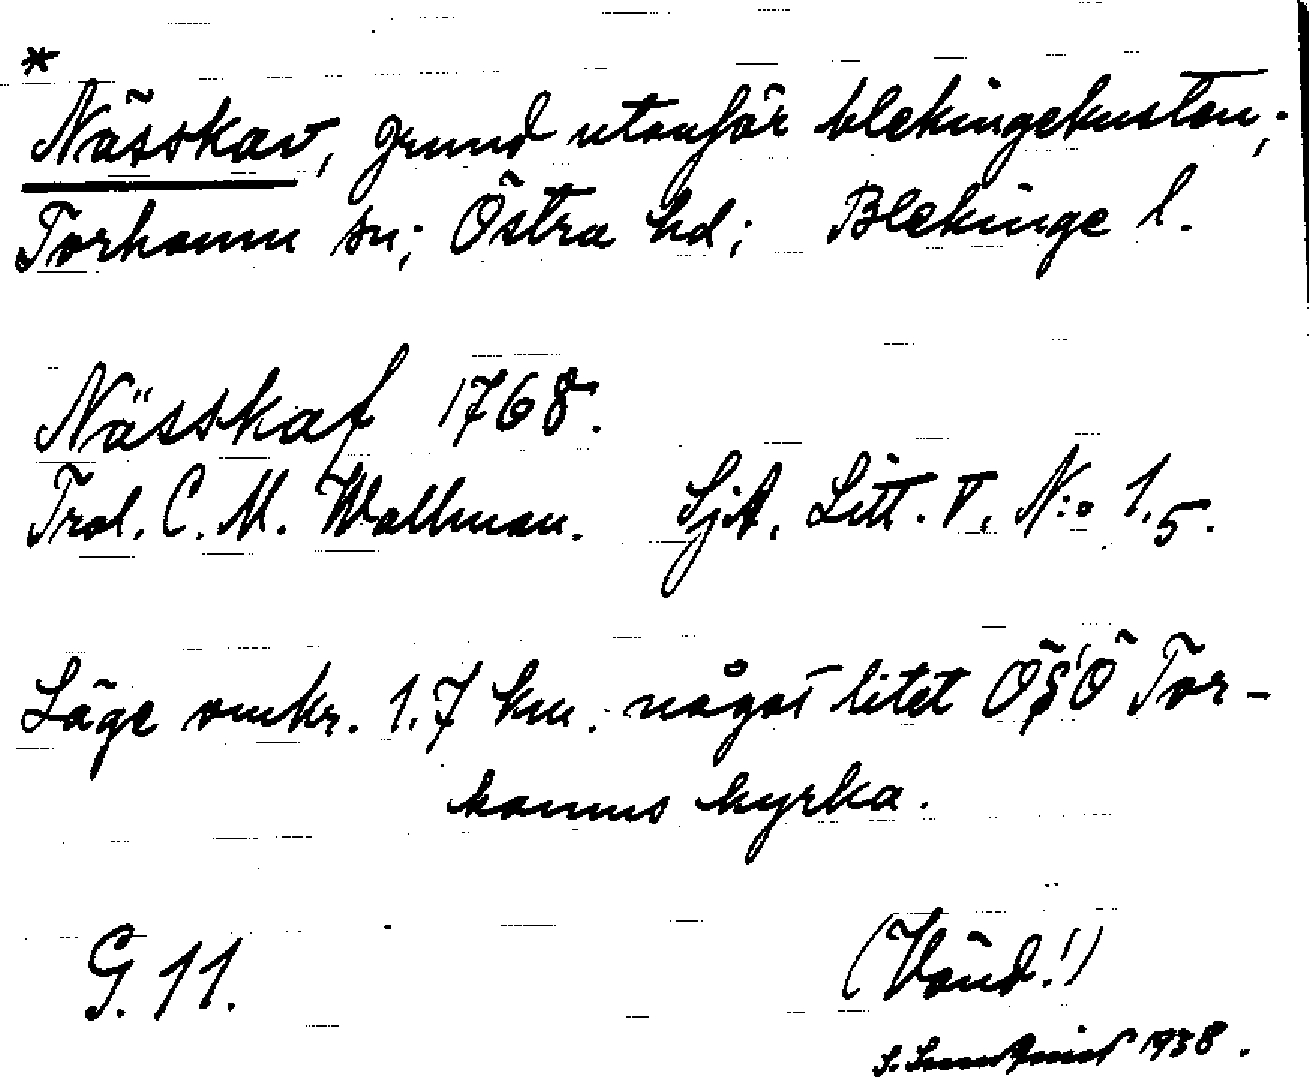 *
Nässkav, grund utanför blekingekusten,;
Torhamn sn; Östra hd; Blekinge l.
Nässkaf 1768.
Trol. C. M. Wallman. SjA. Litt. V. N:o 1.5.
Läge omkr. 1.7 km. något litet ÖS'Ö Tor-
hamns kyrka.
G. 11.
(Vänd!)
S. 1938.